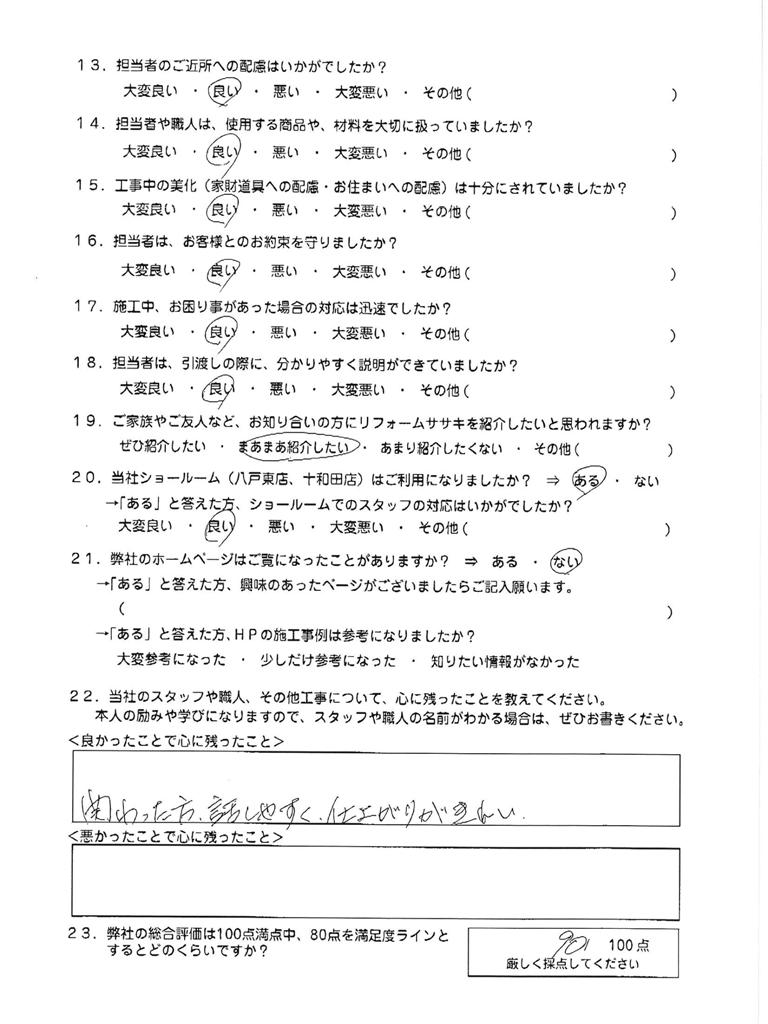 13．担当者のご近所への配慮はいかがでしたか？
大変良い ・ 良い ・ 悪い ・ 大変悪い ・ その他（ ）
14．担当者や職人は、使用する商品や、材料を大切に扱っていましたか？
大変良い ・ 良い ・ 悪い ・ 大変悪い ・ その他（ ）
15．工事中の美化（家財道具への配慮・お住まいへの配慮）は十分にされていましたか？
大変良い ・ 良い ・ 悪い ・ 大変悪い ・ その他（ ）
16．担当者は、お客様とのお約束を守りましたか？
大変良い ・ 良い ・ 悪い ・ 大変悪い ・ その他（ ）
17．施工中、お困り事があった場合の対応は迅速でしたか？
大変良い ・ 良い ・ 悪い ・ 大変悪い ・ その他（ ）
18．担当者は、引渡しの際に、分かりやすく説明ができていましたか？
大変良い ・ 良い ・ 悪い ・ 大変悪い ・ その他（ ）
19．ご家族やご友人など、お知り合いの方にリフォームササキを紹介したいと思われますか？
ぜひ紹介したい ・ まあまあ紹介したい ・ あまり紹介したくない ・ その他（ ）
20．当社ショールーム（八戸東店、十和田店）はご利用になりましたか？ ⇒ ある ・ ない
→「ある」と答えた方、ショールームでのスタッフの対応はいかがでしたか？
大変良い ・ 良い ・ 悪い ・ 大変悪い ・ その他（ ）
21．弊社のホームページはご覧になったことがありますか？ ⇒ ある ・ ない
→「ある」と答えた方、興味のあったページがございましたらご記入願います。
（ ）
→「ある」と答えた方、HPの施工事例は参考になりましたか？
大変参考になった ・ 少しだけ参考になった ・ 知りたい情報がなかった
22．当社のスタッフや職人、その他工事について、心に残ったことを教えてください。
本人の励みや学びになりますので、スタッフや職人の名前がわかる場合は、ぜひお書きください。
<良かったことで心に残ったこと>
関わった方、話しやすく、仕上がりがきれい.
<悪かったことで心に残ったこと>
23．弊社の総合評価は100点満点中、80点を満足度ラインと
するとどのくらいですか？
90/ 100点
厳しく採点してください